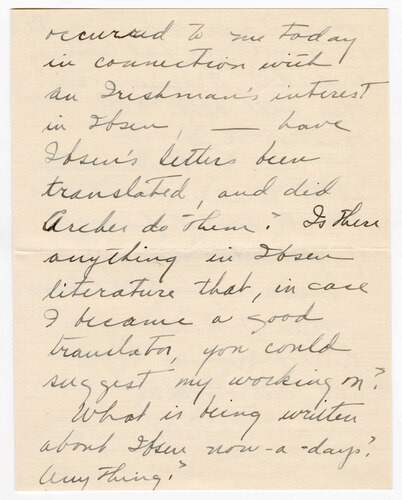 occurred to me today
in connection with
an Irishman's interest
in Ibsen, — have
Ibsen's letters been
translated, and did
Archer do them? Is there
anything in Ibsen
literature that, in case
I became a good
translator, you could
suggest my working on?
What is being written
about Ibsen now-a-days?
Anything?